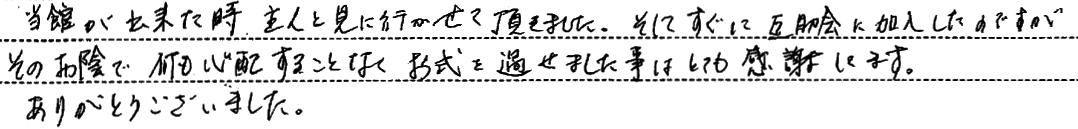 当館が出来た時 主人と見に行かせて頂きました。そしてすぐに互助会に加入したのですが
そのお陰で 何も心配することなく お式を過せました事はとても感謝してます。
ありがとうございました。